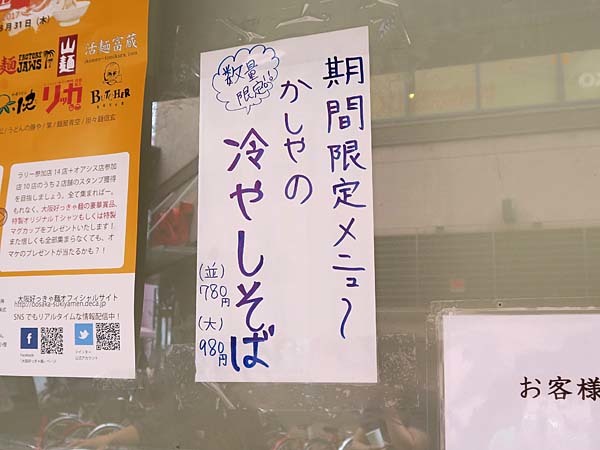 2017
月31日(木)
麺
FACTORY
JAWS
山麺
活麺富蔵
リッカ
BUTCHER
/うどんの勝や/繁/麺屋青空/担々麺信玄
ラリー参加店14店+オアシス店参加
店10店のうち2店舗のスタンプ獲得
を目指しましょう。全て集まればー。
もれなく、大阪好っきゃ麺の豪華賞品、
特製オリジナルTシャツもしくは特製
マグカップをプレゼントいたします!
また惜しくも全部集まらなくても、オ
マケのプレゼントが当たるかも?!
大阪好っきゃ麺オフィシャルサイト
http://oosaka-sukiyamen.deca.jp
SNSでもリアルタイムな情報配信中!
Facebook
「大阪好っきゃ麺」ページ
ツイッター
公式アカウント
期間限定メニュ〜
数量
限定!!
かしやの
冷やしそば
(並)
780円
(大)
980円
お客様